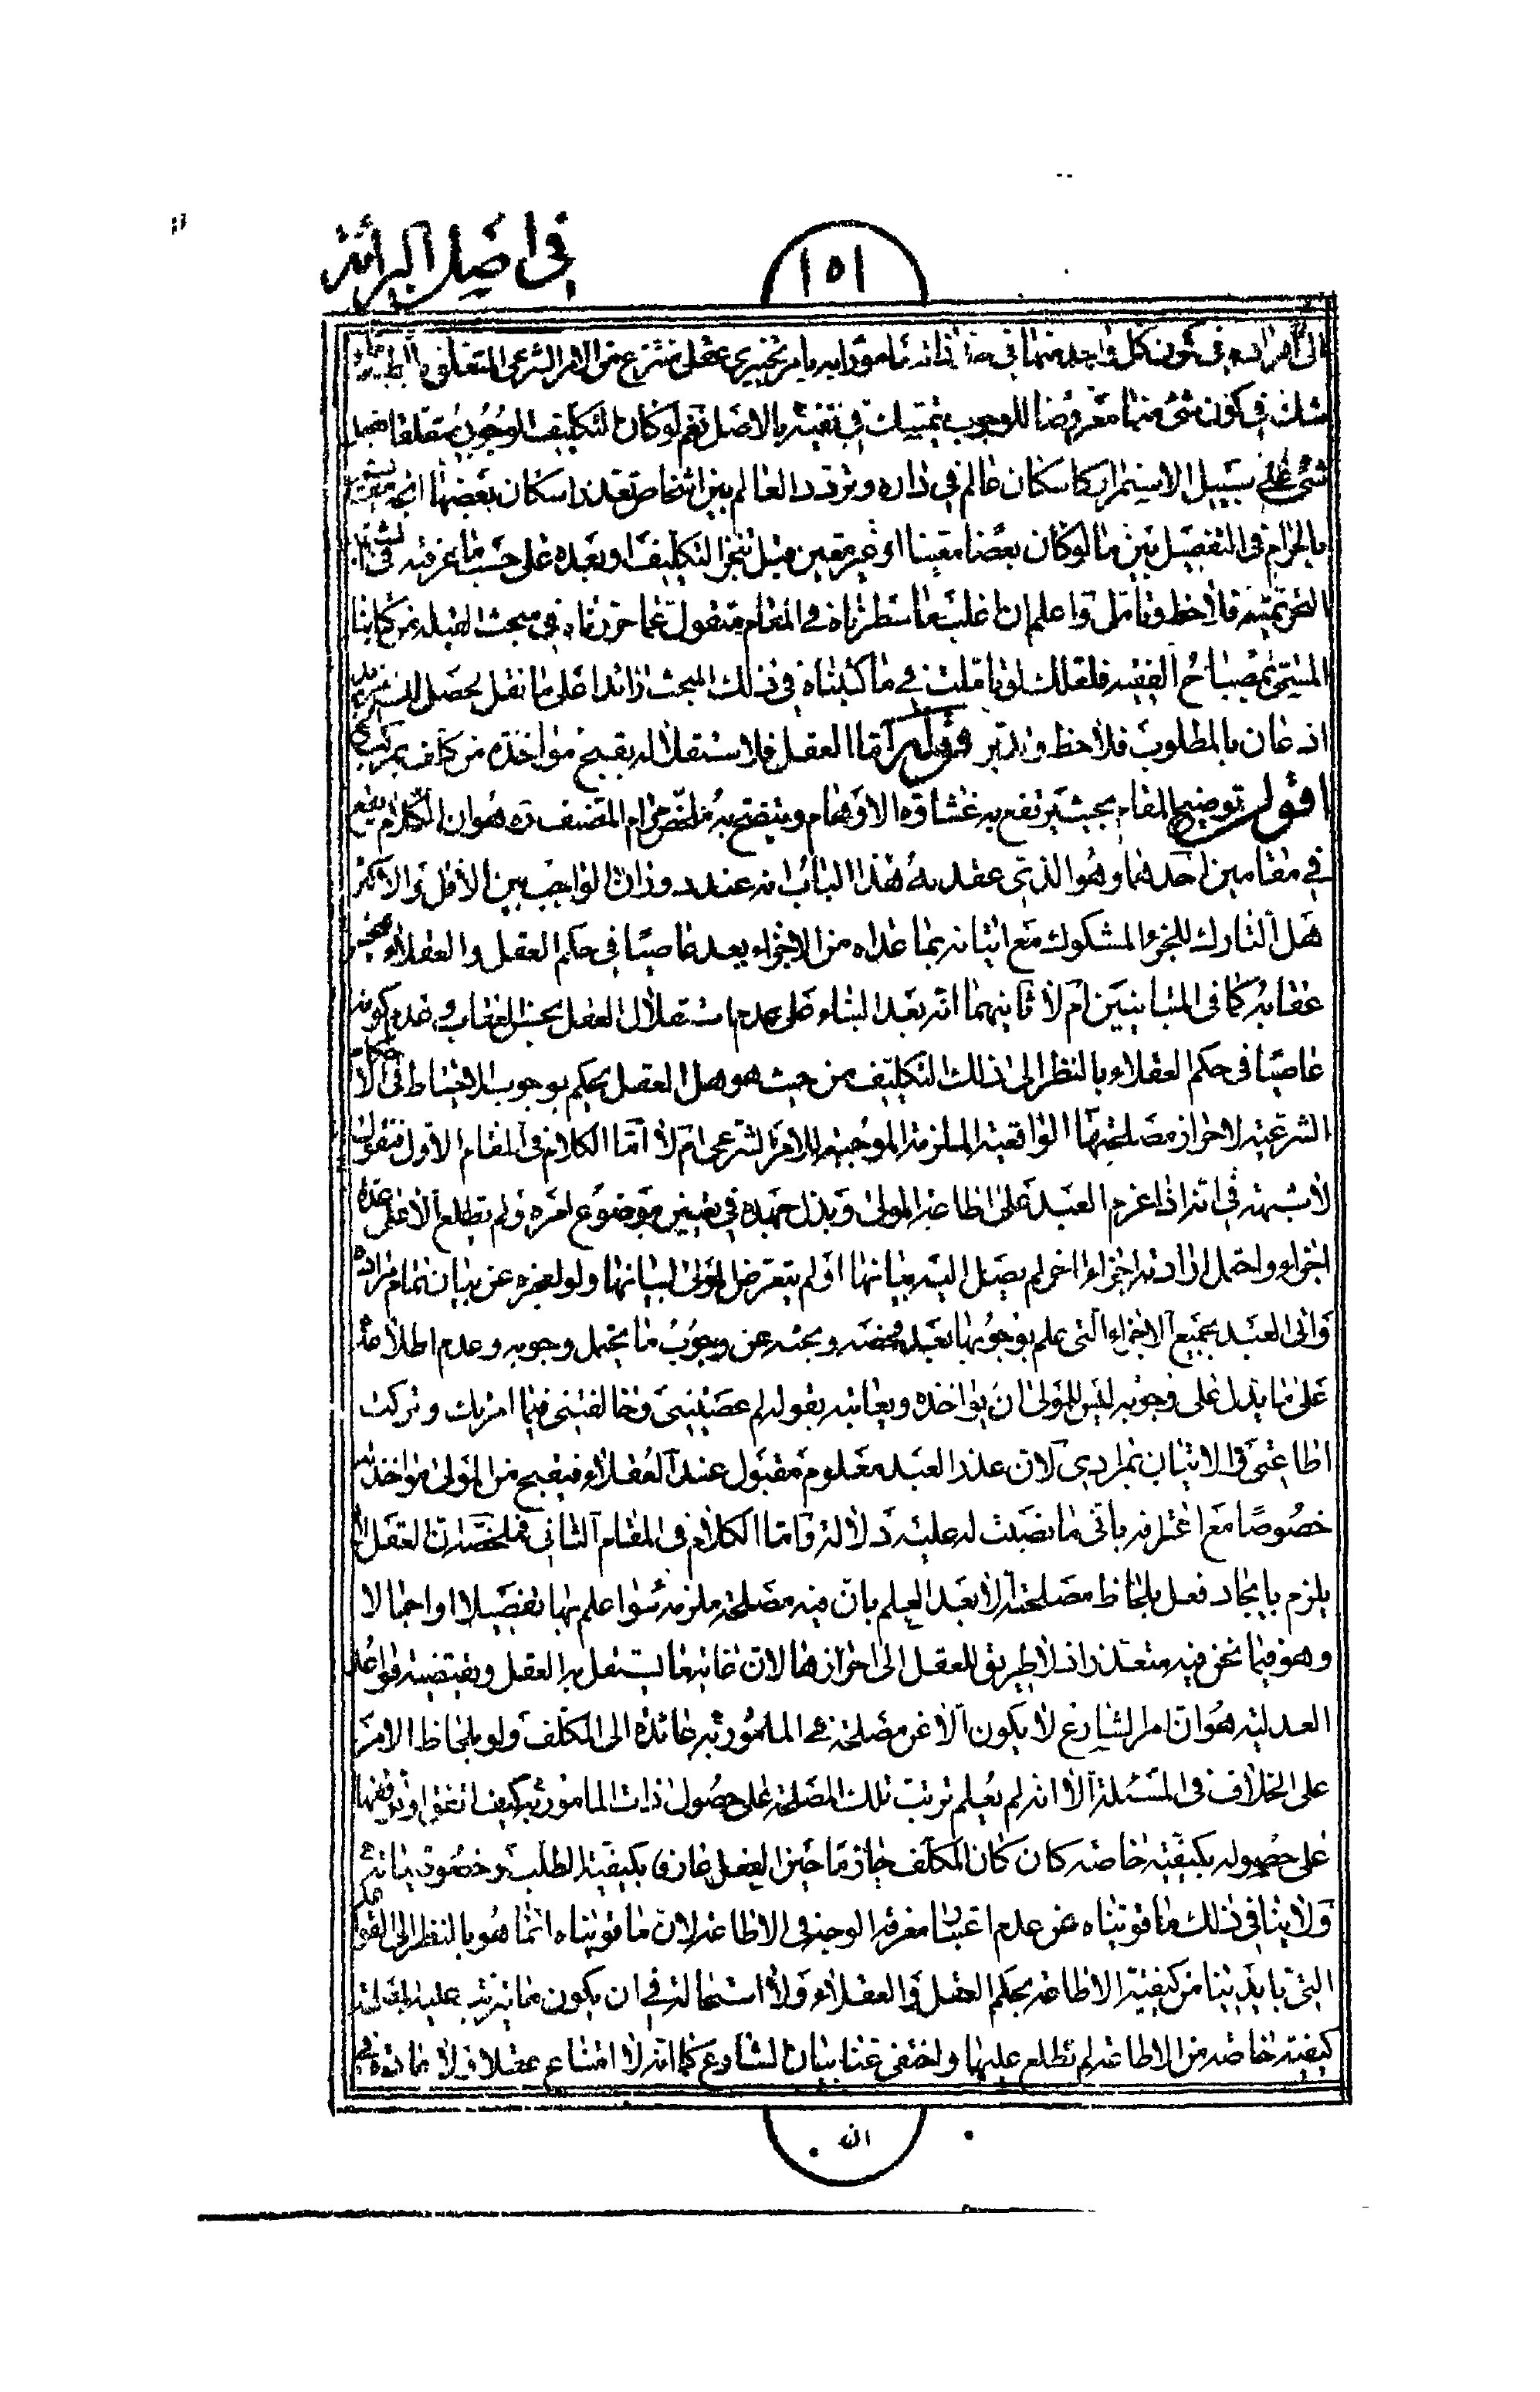 في اصل البرائة
١٥١
الى افراده في كون كل واحد منها في حد ذاته مامورا به بامر تخييري عقلي منتزع من الامر الشرعي المتعلق بالطبيعة
شك في كون شئ منها معروضا للوجوب يتمسك في نفيه بالاصل نعم لو كان التكليف الوجوبي متعلقا بفعل
شئ على سبيل الاستمرار كاسكان عالم في داره وتردد العالم بين اشخاص تعذر اسكان بعضها اتجه
بالحرام في التفصيل بين ما لو كان بعضا معينا او غير معين قبل تنجز التكليف او بعده على حسب ما عرفته في
التحريمية فلاحظ وتامل واعلم ان اغلب ما سطرناه في المقام منقول عما حررناه في مبحث القبلة من كتابنا
المسمى بمصباح الفقيه فلعلك لو تاملت في ما كتبناه في ذلك المبحث زائدا على ما نقل يحصل لك مزيد
اذعان بالمطلوب فلاحظ وتدبر قوله اما العقل فلاستقلاله بقبح مؤاخذة من كلف بمركب
اقول توضيح المقام بحيث يرتفع به غشاوة الاوهام ويتضح به ملخص مرام المصنف ره هو ان الكلام يقع
في مقامين احدهما وهو الذي عقد به هذا الباب انه عند دوران الواجب بين الاقل والاكثر
هل التارك للجزء المشكوك مع اتيانه بما عداه من الاجزاء يعد عاصيا في حكم العقل والعقلاء فيحسن
عقابه كما في المتباينين ام لا ثانيهما انه بعد البناء على عدم استقلال العقل بحسن العقاب وعدم كونه
عاصيا في حكم العقلاء بالنظر الى ذلك التكليف من حيث هو هل العقل يحكم بوجوب الاحتياط في الاحكام
الشرعية لاحراز مصلحتها الواقعية الملزمة الموجبة للامر الشرعي ام لا اما الكلام في المقام الاول فنقول
لا شبهة في انه اذا عزم العبد على اطاعة المولى وبذل جهده في تعيين موضوع امره ولم يطلع الا على عدة
اجزاء واحتمل ارادة اجزاء اخر لم يصل اليه بيانها او لم يتعرض المولى لبيانها ولو لعجزه عن بيان تمام مراده
واتى العبد بجميع الاجزاء التي علم بوجوبها بعد فحصه وبحثه عن وجوب ما يحتمل وجوبه وعدم اطلاعه
على ما يدل على وجوبه ليس للمولى ان يؤاخذه ويعاتبه بقوله لم عصيتني وخالفتني فيما امرتك وتركت
اطاعتي في الاتيان بمرادي لان عذر العبد معلوم مقبول عند العقلاء فيقبح من المولى مؤاخذته
خصوصا مع اعترافه باني ما نصبت له عليه دلالة واما الكلام في المقام الثاني فملخصه ان العقل لا
يلزم بايجاد فعل بلحاظ مصلحته الا بعد العلم بان فيه مصلحة ملزمة سواء علم بها تفصيلا او اجمالا
وهو فيما نحن فيه متعذر اذ لا طريق للعقل الى احرازها لان غاية ما يستقل به العقل ويقتضيه قواعد
العدلية هو ان امر الشارع لا يكون الا عن مصلحة في المامور به عائدة الى المكلف ولو بلحاظ الامر
على الخلاف في المسئلة الا انه لم يعلم ترتب تلك المصلحة على حصول ذات المامور به كيف اتفق او توقفها
على حصوله بكيفية خاصة كان كان المكلف جازما حين الفعل عارفا بكيفية الطلب وخصوصياته
ولا ينافي ذلك ما قويناه من عدم اعتبار معرفة الوجه في الاطاعة لان ما قويناه انما هو بالنظر الى القواعد
التي بايدينا من كيفية الاطاعة بحكم العقل والعقلاء ولا استحالة في ان يكون مما يترتب عليه المصلحة
كيفية خاصة من الاطاعة لم نطلع عليها واختفى عنا بيان الشارع كما انه لا امتناع عقلا ولا عادة في